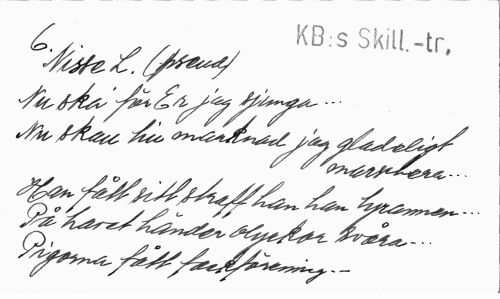 KB:s Skill.-tr.
6.
Nisse L. (pseud)
Nu ska' för Er jag sjunga...
Nu skall hin marknad jag gladeligt
marschera...
Han fått sitt straff han han tyrannen...
På havet händer olyckor svåra...
Pigorna fått fackförening...